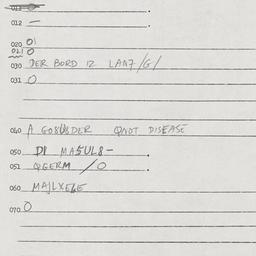 012 — .
020 0
021 0
030 DER BORD IZ LAN7/G/
031 0
060 A GOSUSDER QNDT DISEASE
050 DI MASUL8- .
051 QGERM / O .
060 MAJLXELE
070 0